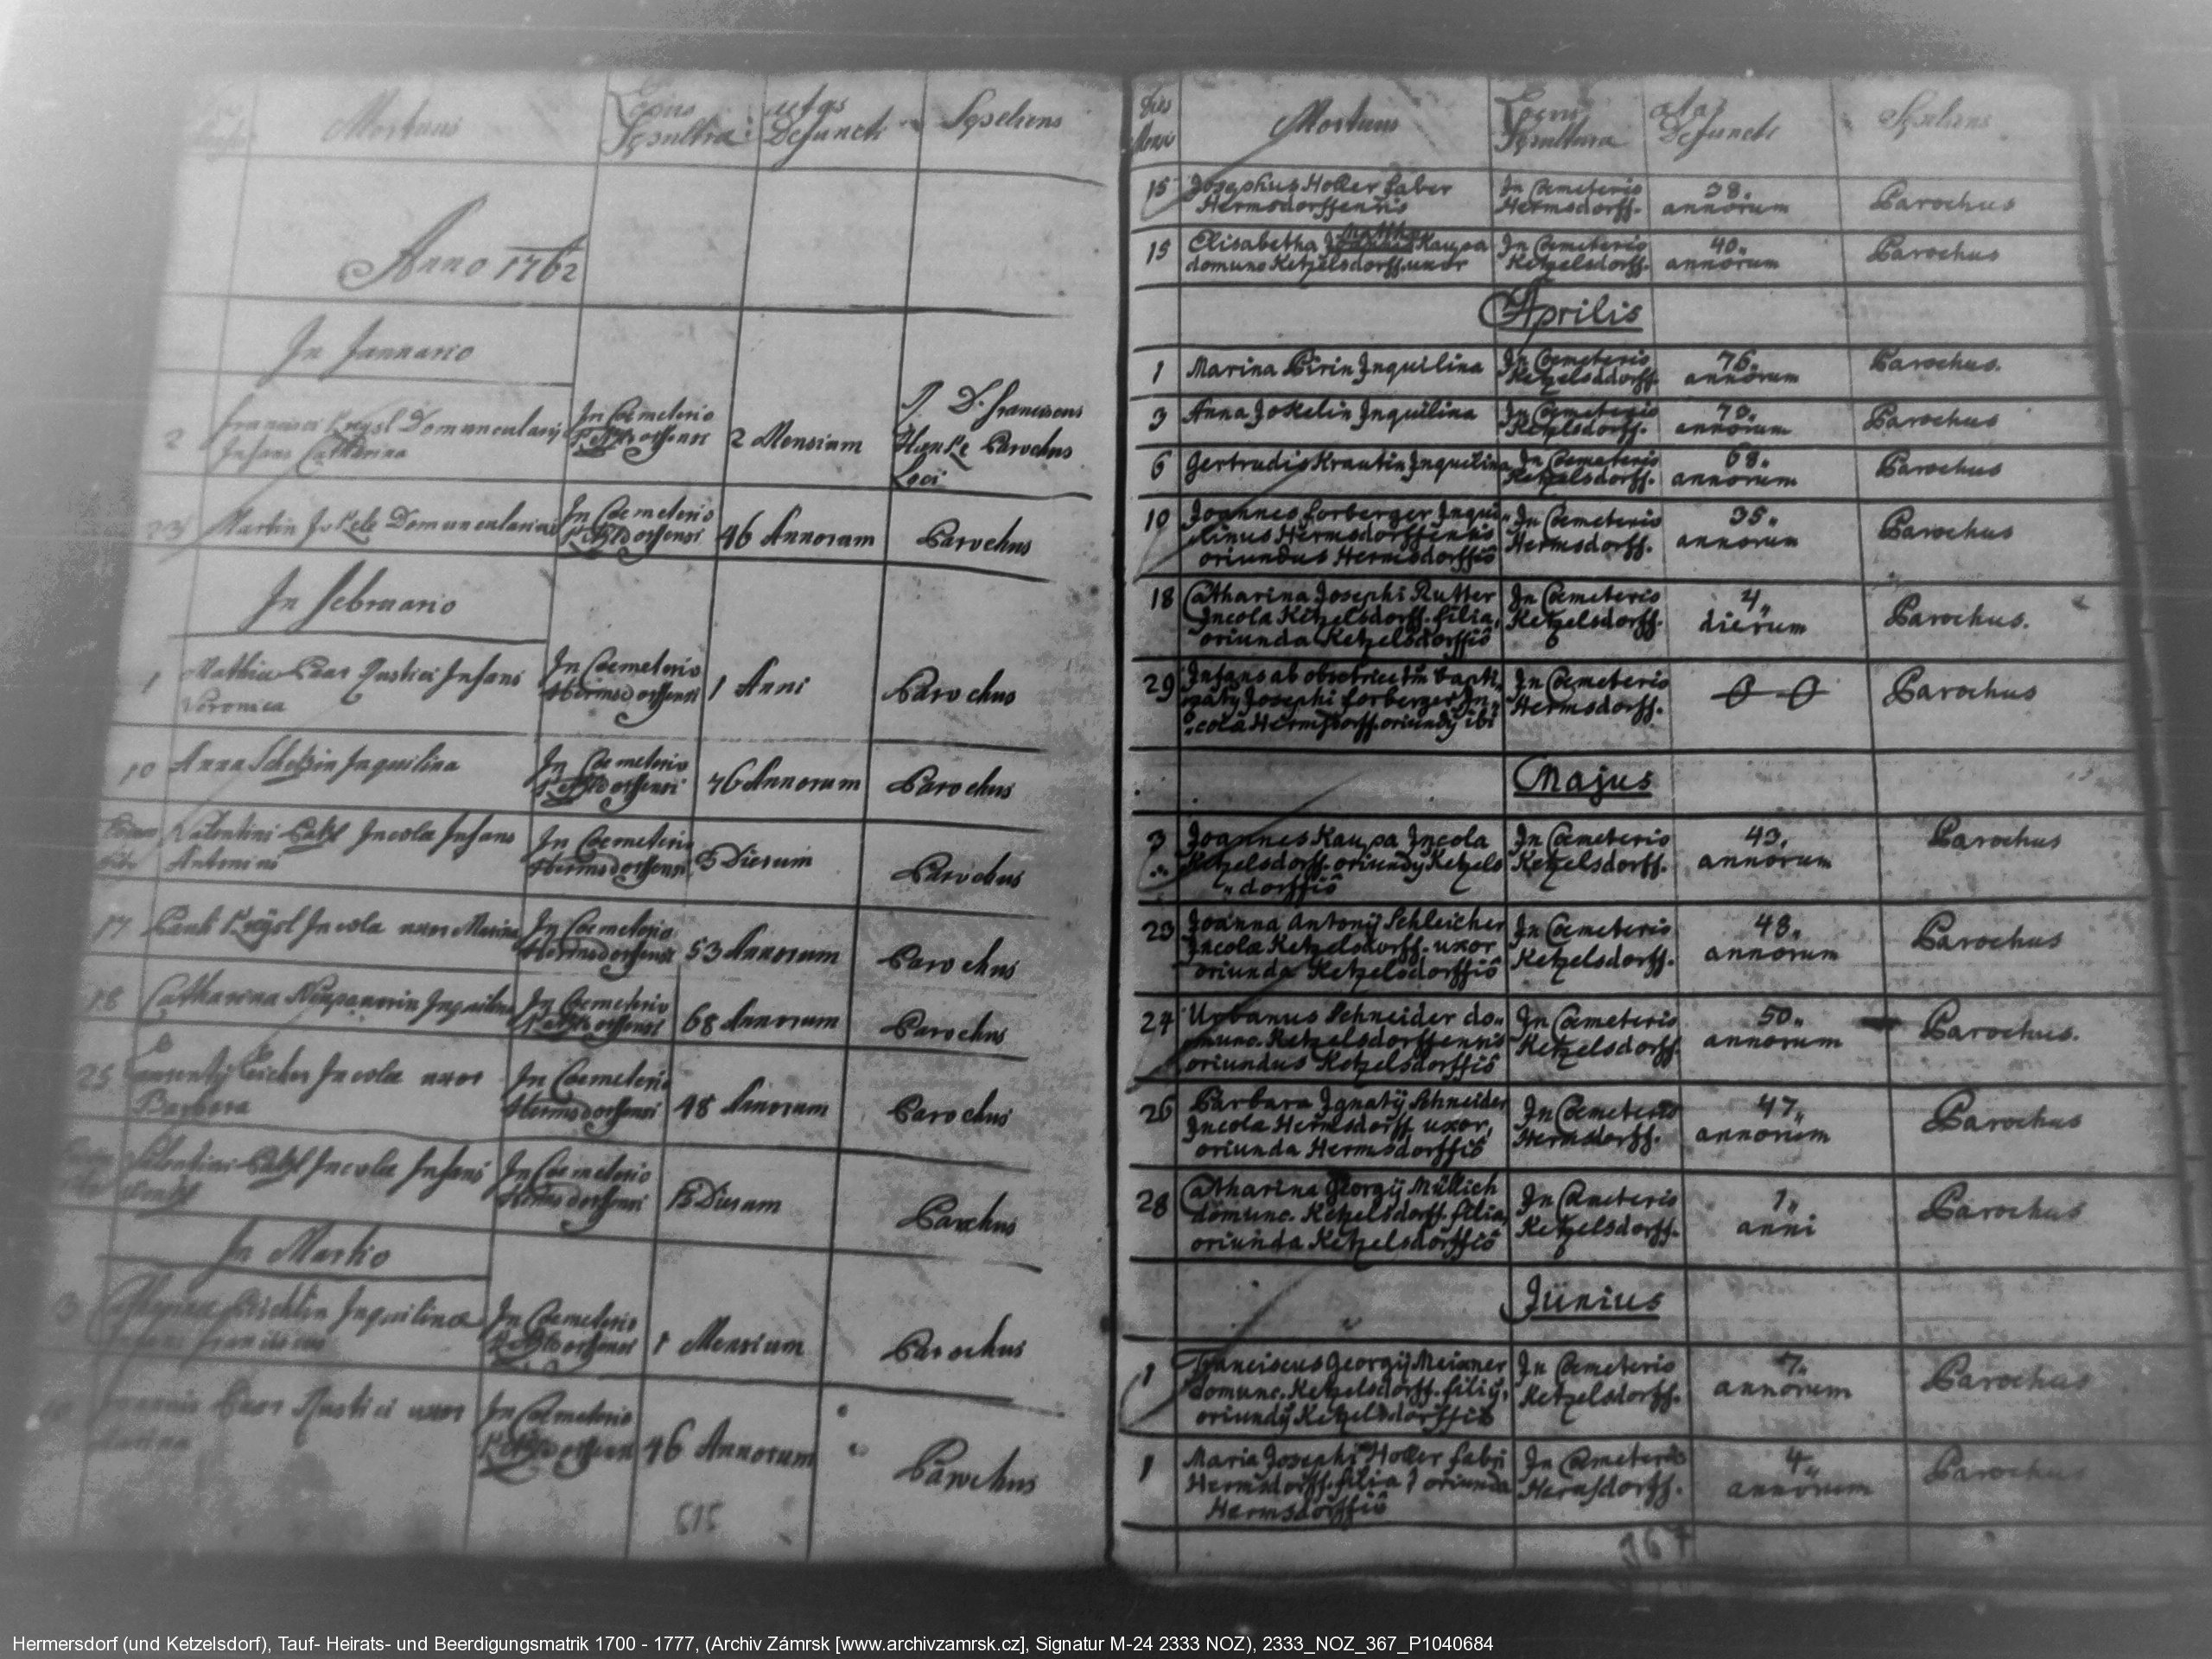 Mortuus
Locus
Sepultura
aetas
Defuncti
Sepeliens
Anno 1762
In Januario
2
Domuncularij
Infans Catharina
In Coemeterio
2 Mensium
P. D. Franciscus
Parochus
Loci
Martin Jokele Domuncularius
In Coemeterio
46 Annorum
Parochus
In Februario
1
Mathiae Paar Rustici Infans
Veronica
In Coemeterio
Hermsdorffensi
1 Anni
Parochus
10
Anna Inquilina
In Coemeterio
76 Annorum
Parochus
Valentini Incolae Infans
Antonini
In Coemeterio
Hermsdorffensi
Dierum
Parochus
17
Pauli Incola uxor Marina
In Coemeterio
Hermsdorffensi
53 Annorum
Parochus
18
Catharina Inquilina
In Coemeterio
68 Annorum
Parochus
25
Laurentij Incolae uxor
Barbara
In Coemeterio
Hermsdorffensi
48 Annorum
Parochus
Valentini Incolae Infans
In Coemeterio
Hermsdorffensi
Dierum
Parochus
In Martio
3
Inquilinae
Franciscus
In Coemeterio
1 Mensium
Parochus
Joannis Paar Rustici uxor
Marina
In Coemeterio
46 Annorum
Parochus
515
Dies
Mensis
Mortuus
Locus
Sepultura
aetas
Defuncti
Sepeliens
15
Josephus Holler faber
Hermsdorffensis
In Coemeterio
Hermsdorff.
38„
annorum
Parochus
15
Elisabetha Kaupa
domunc Ketzelsdorff. uxor
In Coemeterio
Ketzelsdorff.
40„
annorum
Parochus
Aprilis
1
Marina Pirin Inquilina
In Coemeterio
Ketzelsddorff.
76„
annorum
Parochus.
3
Anna Jokelin Inquilina
In Coemeterio
Ketzelsdorff.
annorum
Parochus
6
Gertrudis Krautin Inquilina
In Coemeterio
Ketzelsdorff.
68„
annorum
Parochus
10
Joannes Forberger Inqui„
„linus Hermsdorffensis
oriundus Hermsdorffiô
In Coemeterio
Hermsdorff.
35„
annorum
Parochus
18
Catharina Josephi Rutter
Incola Ketzelsdorff. filia,
oriunda Ketzelsdorffiô
In Coemeterio
Ketzelsdorff.
4„
dierum
Parochus.
29
Infans ab obsetrice tm̄ bapti„
zatȝ Josephi Forberger In„
„cola Hermsdorff. oriundȝ ibi
In Coemeterio
Hermsdorff.
Parochus
Majus
3
Joannes Kaupa Incola
Ketzelsdorff. oriundȝ Ketzels
„dorffiô
In Coemeterio
Ketzelsdorff.
43„
annorum
Parochus
23
Joanna Antonij Schleicher
Incola Ketzelsdorff. uxor
oriunda Ketzelsdorffiô
In Coemeterio
Ketzelsdorff.
48„
annorum
Parochus
24
Urbanus Schneider do„
munc. Ketzelsdorffensis
oriundus Ketzelsdorffiô
In Coemeterio
Ketzelsdorff.
50„
annorum
Parochus.
26
Barbara Ignatij Schneider
Incola Hermsdorff uxor,
oriunda Hermsdorffiô
In Coemeterio
Hermsdorff.
47„
annorum
Parochus
28
Catharina Georgij Müllich
domunc. Ketzelsdorff. filia,
oriunda Ketzelsdorffiô
In Coemeterio
Ketzelsdorff.
1„
anni
Parochus
Jünius
1
Franciscus Georgij Meixner
domunc. Ketzelsdorff. filiȝ,
oriundȝ Ketzelsdorffiô
In Coemeterio
Ketzelsdorff.
7„
annorum
Parochus
1
Maria Josephi Holler fabri
Hermsdorff. filia oriunda
Hermsdorffiô
In Coemeterio
Hermsdorff.
4„
annorum
Parochus
367
Hermersdorf (und Ketzelsdorf), Tauf- Heirats- und Beerdigungsmatrik 1700 - 1777, (Archiv Zámrsk [www.archivzamrsk.cz], Signatur M-24 2333 NOZ), 2333_NOZ_367_P1040684